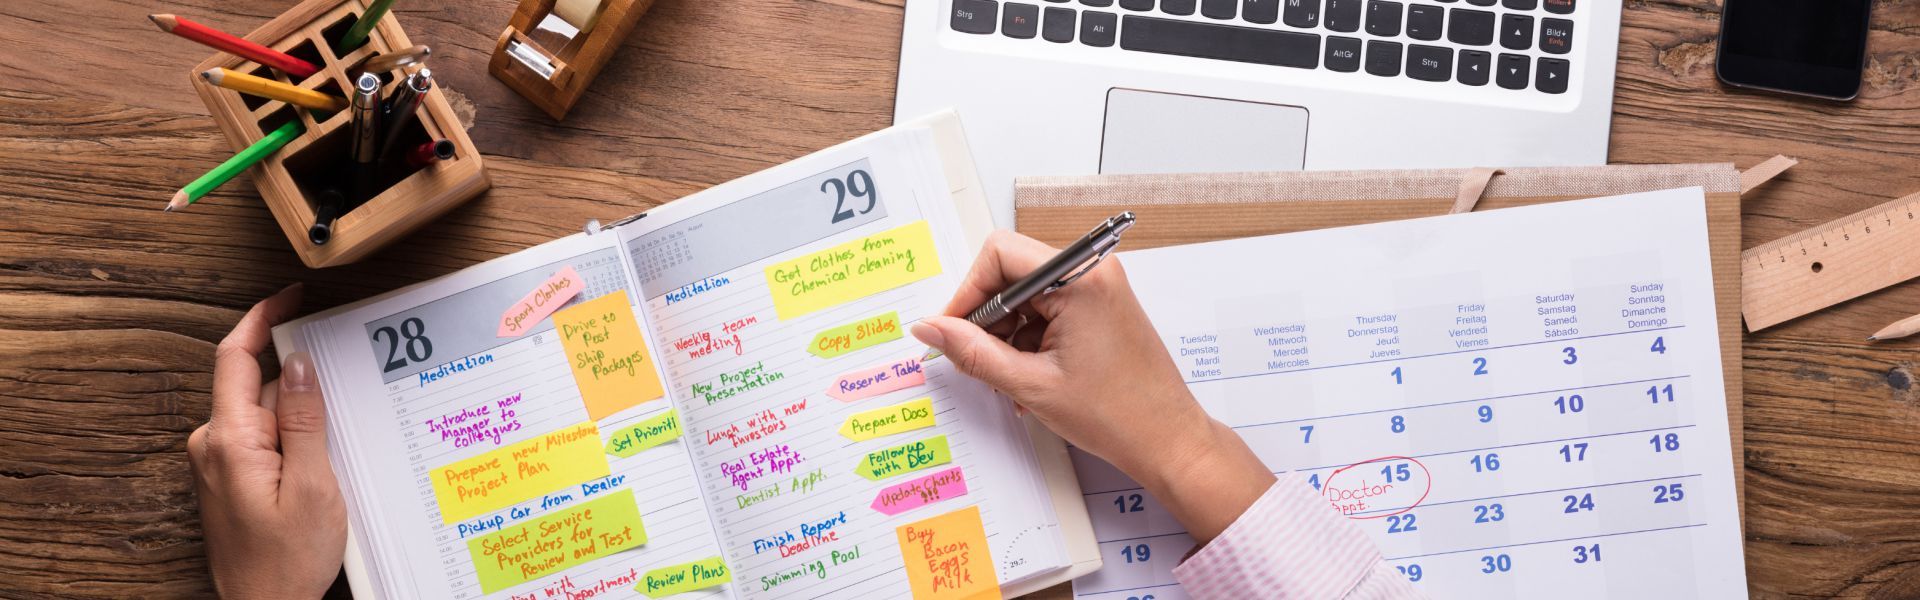 Strg
Fn
Alt
AltGr
Strg
Bild
Einfg
28
Meditation
Introduce new
Manager to
Colleagues
Prepare new Milestone
Project Plan
Pickup Car from Dealer
Select Service
Providers for
Review and Test
with
Department
Sport Clothes
Drive to
Post
Ship
Packages
Set Prioriti
Review Plans
29
August
Meditation
Weekly team
meeting
New Project
Presentation
Lunch with new
Investors
Real Estate
Agent Appt.
Dentist Appt.
Finish Report
Deadline
Swimming Pool
Get Clothes from
Chemical cleaning
Copy Slides
Reserve Table
Prepare Docs
Follow up
with Dev
Update Charts
!!!
Buy
Bacon
Eggs
Milk
29.7.
Tuesday
Dienstag
Mardi
Martes
Wednesday
Mittwoch
Mercredi
Miércoles
Thursday
Donnerstag
Jeudi
Jueves
Friday
Freitag
Vendredi
Viernes
Saturday
Samstag
Samedi
Sábado
Sunday
Sonntag
Dimanche
Domingo
1 2 3 4
7 8 9 10 11
12 4 15 16 17 18
Doctor
Appt.
19 22 23 24 25
29 30 31
1 2 3 4 5 6 7 8